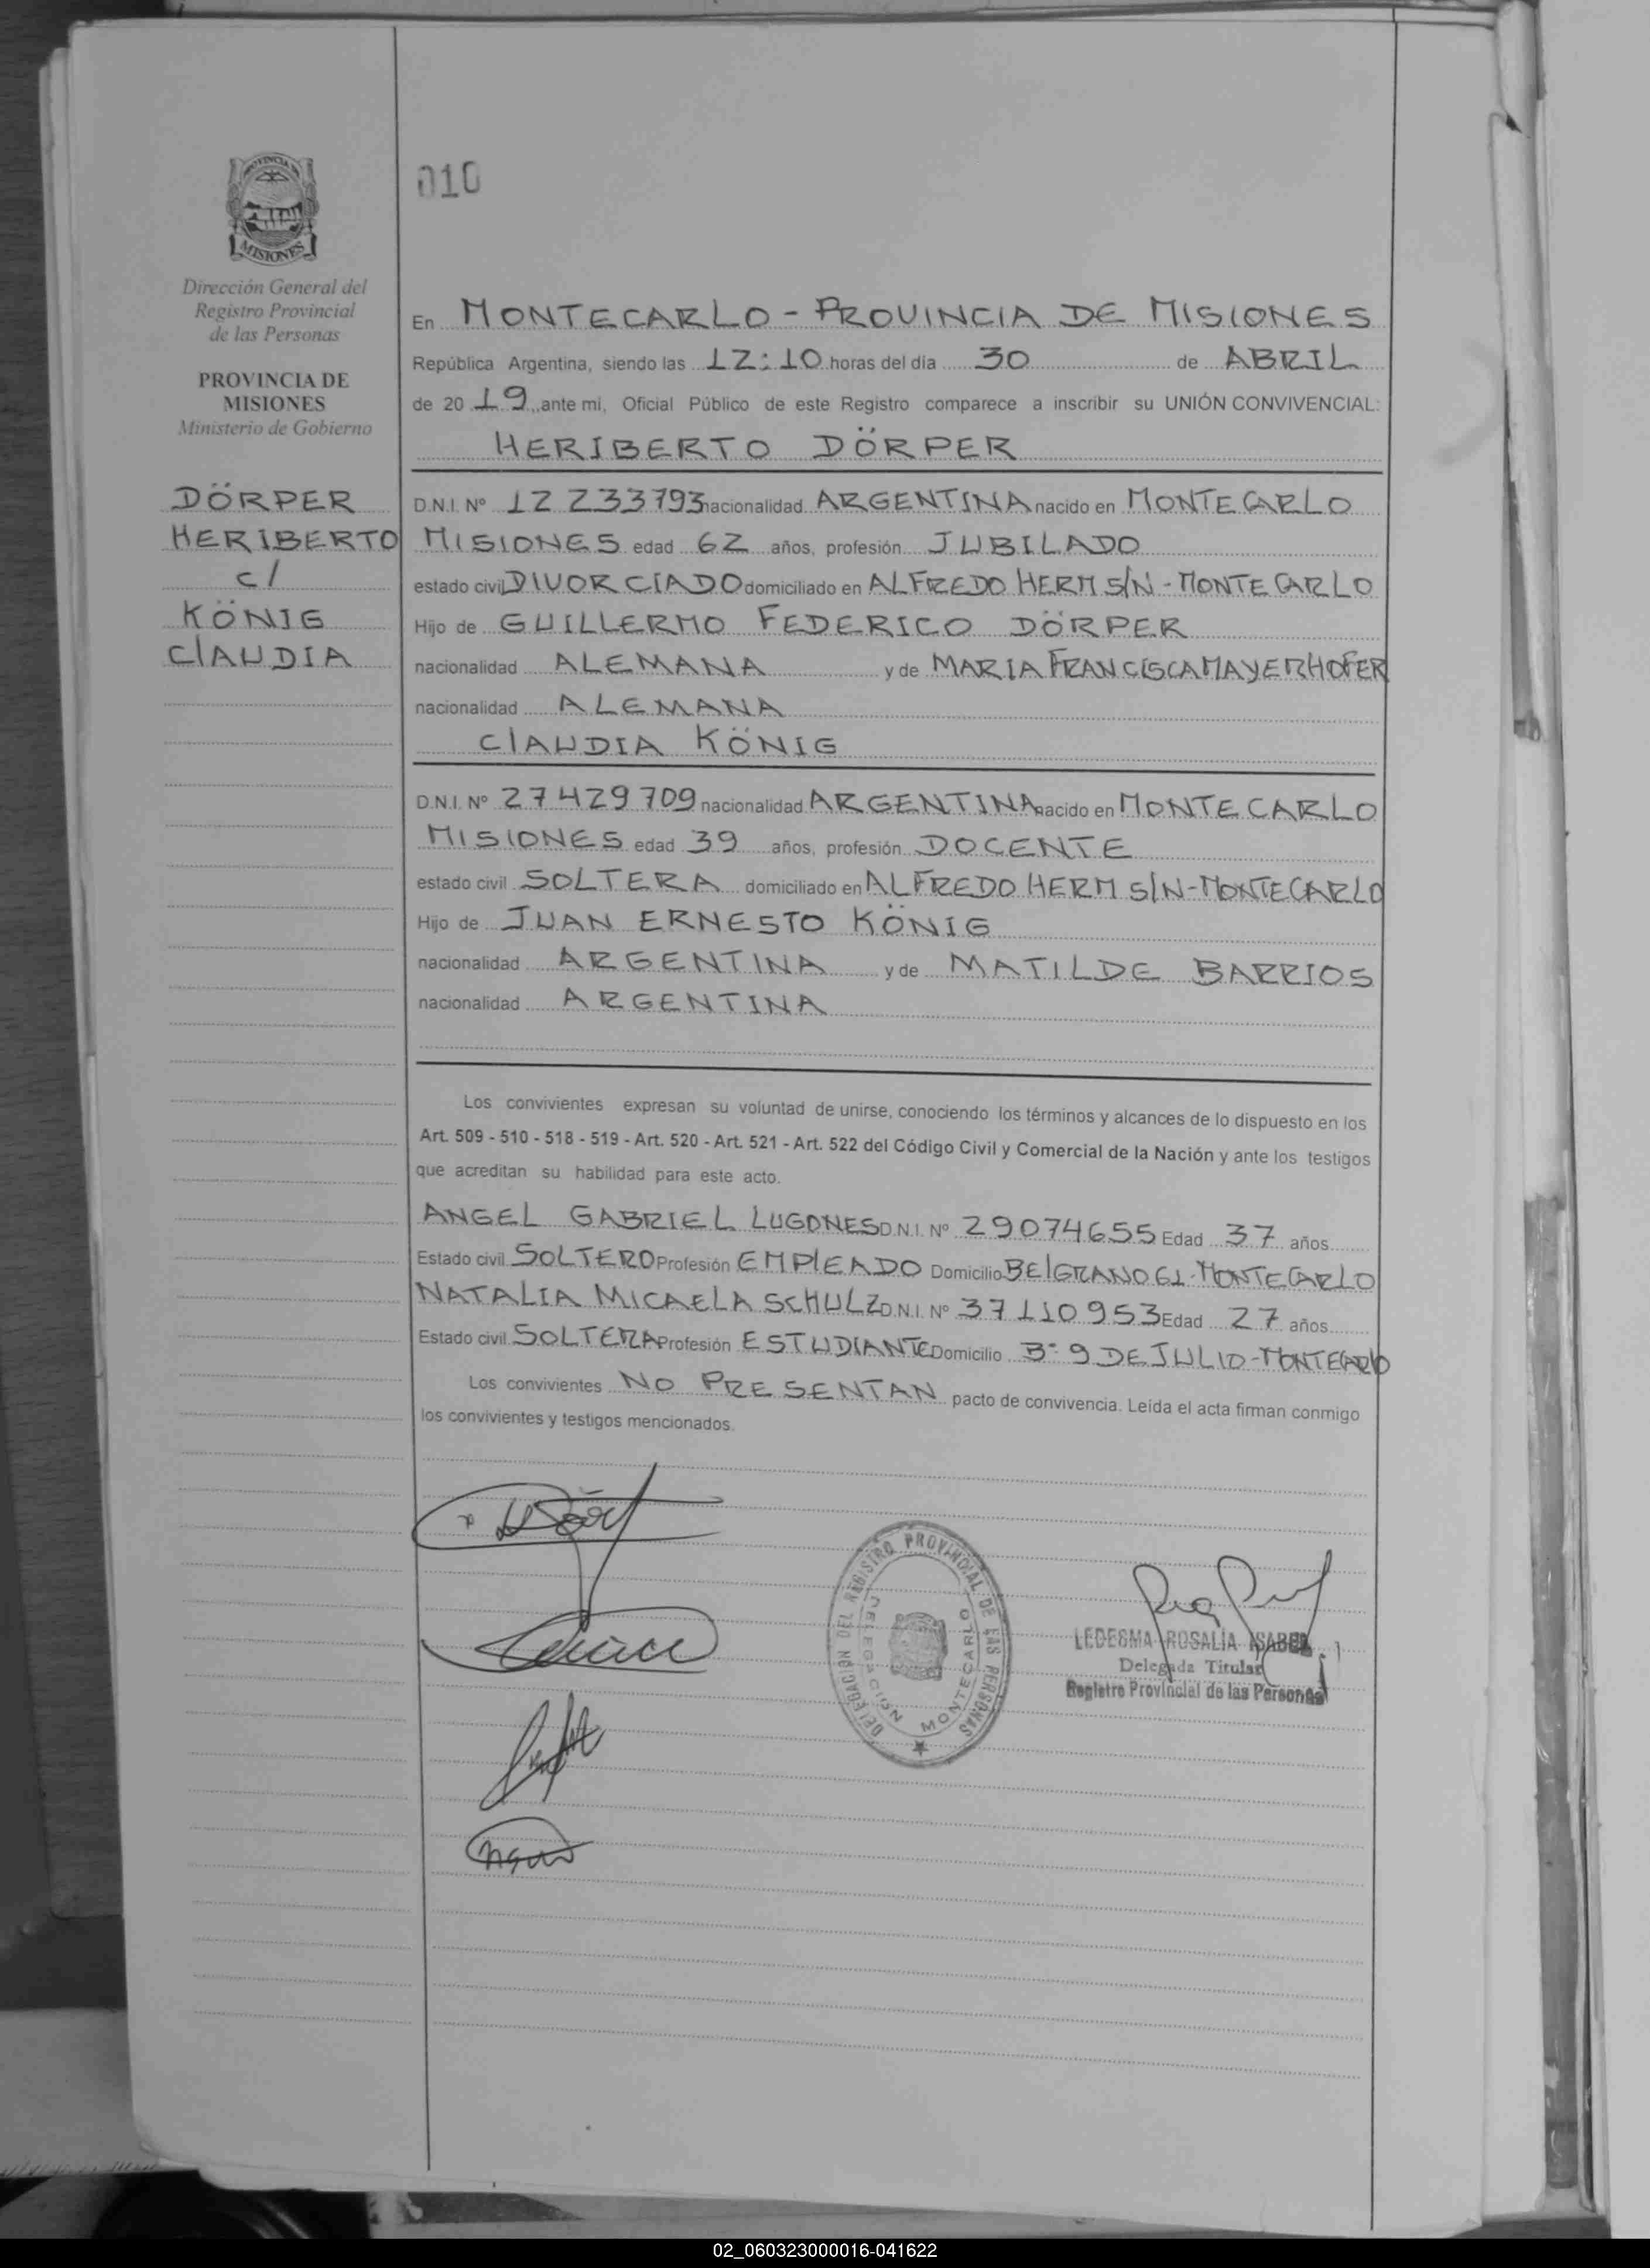 PROVINCIA DE
MISIONES
Dirección General del
Registro Provincial
de las Personas
PROVINCIA DE
MISIONES
Ministerio de Gobierno
DÖRPER
HERIBERTO
C/
KÖNIG
ClAUDIA
010
En MONTECARLO - PROVINCIA DE MISIONES
República Argentina, siendo las 12:10 horas del día 30 de ABRIL
de 20 19 ante mi, Oficial Público de este Registro comparece a inscribir su UNIÓN CONVIVENCIAL:
HERIBERTO DÖRPER
D.N.I. Nº 12 233793 nacionalidad ARGENTINA nacido en MONTECARLO
MISIONES edad 62 años, profesión JUBILADO
estado civil DIVORCIADO domiciliado en ALFREDO HERM S/N - MONTECARLO
Hijo de GUILLERMO FEDERICO DÖRPER
nacionalidad ALEMANA y de MARIA FRANCISCA MAYERHOFER
nacionalidad ALEMANA
ClAUDIA KÖNIG
D.N.I. Nº 27 429 709 nacionalidad ARGENTINA nacido en MONTECARLO
MISIONES edad 39 años, profesión DOCENTE
estado civil SOLTERA domiciliado en ALFREDO HERM S/N - MONTECARLO
Hijo de JUAN ERNESTO KÖNIG
nacionalidad ARGENTINA y de MATILDE BARRIOS
nacionalidad ARGENTINA
Los convivientes expresan su voluntad de unirse, conociendo los términos y alcances de lo dispuesto en los
Art. 509 - 510 - 518 - 519 - Art. 520 - Art. 521 - Art. 522 del Código Civil y Comercial de la Nación y ante los testigos
que acreditan su habilidad para este acto.
ANGEL GABRIEL LUGONES D.N.I. Nº 29074655 Edad 37 años
Estado civil SOLTERO Profesión EMPlEADO Domicilio BElGRANO 61 - MONTECARLO
NATALIA MICAELA SCHULZ D.N.I. Nº 37 110 953 Edad 27 años
Estado civil SOLTERA Profesión ESTUDIANTE Domicilio Bº 9 DE JULIO - MONTECARlO
Los convivientes NO PRESENTAN pacto de convivencia. Leída el acta firman conmigo
los convivientes y testigos mencionados.
DELEGACIÓN DEL REGISTRO PROVINCIAL DE LAS PERSONAS
DELEGACIÓN MONTECARLO
LEDESMA ROSALÍA ISABEL
Delegada Titular
Registro Provincial de las Personas
02_060323000016-041622